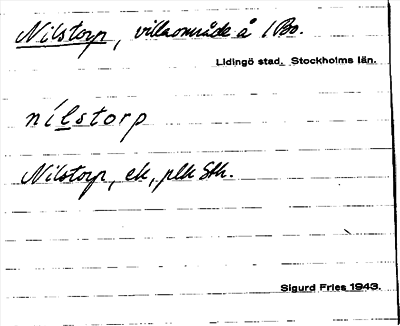 Nilstorp, villaområde å 1 Bo.
Lidingö stad. Stockholms län.
nílstorp
Nilstorp, ek., plk Sth.
Sigurd Fries 1943.